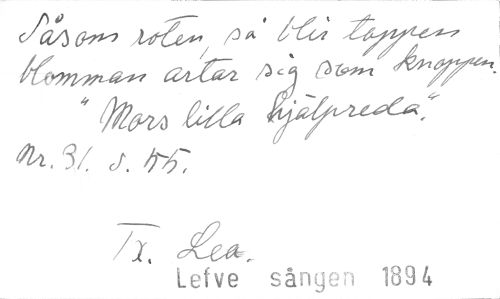 Såsom roten, så blir toppen
blomman artar sig som knoppen.
"Mors lilla hjälpreda".
Nr. 31. s. 55.
Tx. Lea.
Lefve sången 1894